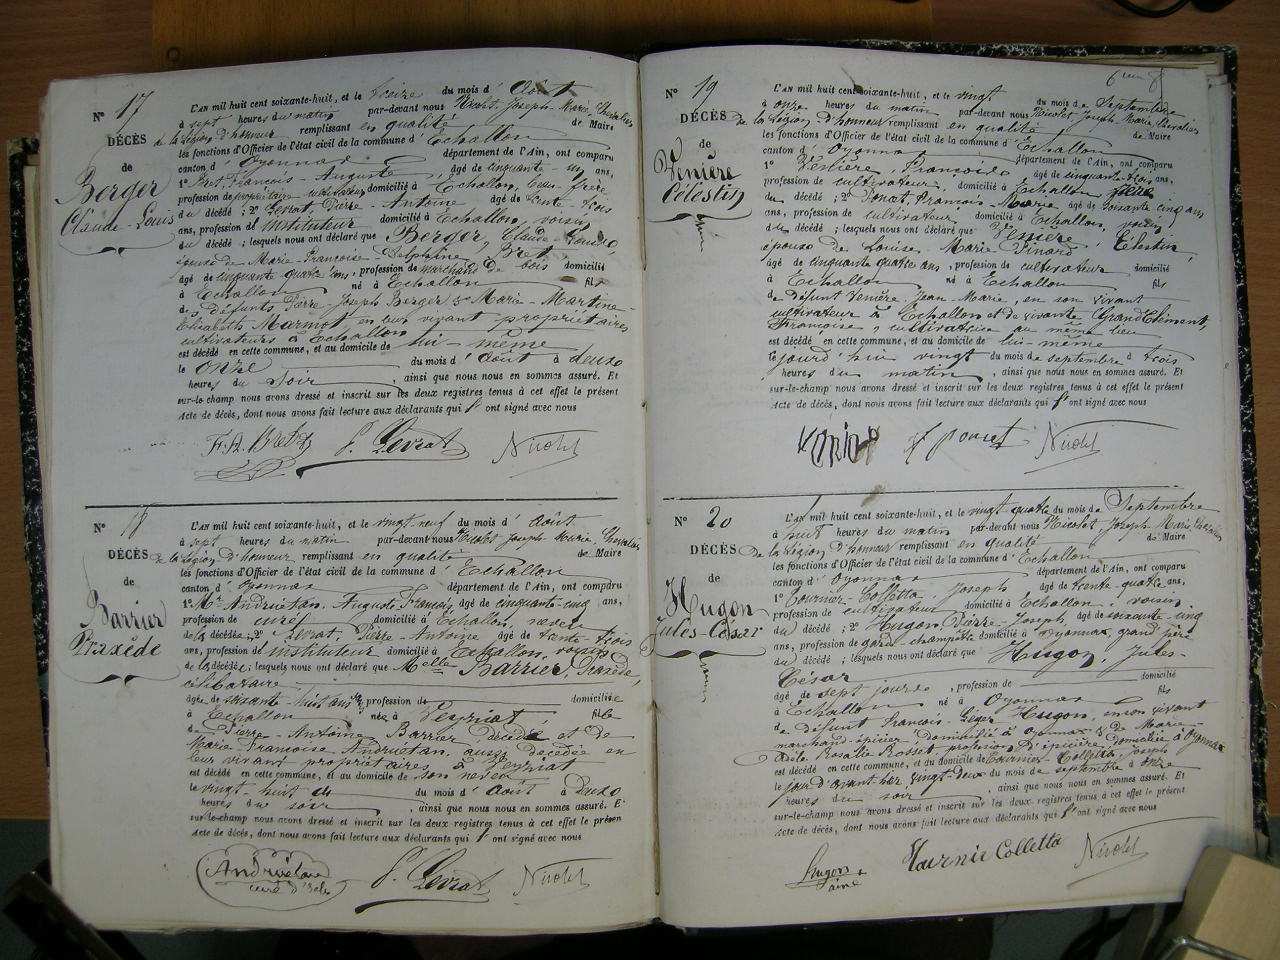 N° 17
DÉCÈS
de
Berger
Claude-Louis
L'AN mil huit cent soixante-huit, et le treize du mois d'Août
à sept heures du matin par-devant nous Nicolet Joseph-Marie, Chevalier
de la Légion d'honneur remplissant en qualité de Maire
les fonctions d'Officier de l'état civil de la commune d'Échallon
canton d'Oyonnax département de l'Ain, ont comparu
1° Bret, François-Auguste âgé de cinquante-un ans,
profession de propriétaire cultivateur domicilié à Échallon, beau-frère
du décédé; 2° Levrat Pierre-Antoine âgé de trente-trois
ans, profession d'instituteur domicilié à Echallon, voisin
du décédé; lesquels nous ont déclaré que Berger, Claude Louis,
époux de Marie-Françoise-Delphine Bret
âgé de cinquante quatre ans, profession de marchand de bois domicilié
à Echallon né à Echallon fils
des défunts Pierre-Joseph Berger & Marie-Martine-
Elisabeth Marmet en leur vivant propriétaires
cultivateurs à Echallon
est décédé en cette commune, et au domicile de lui-même
le onze du mois d'Août à deux
heures du soir, ainsi que nous nous en sommes assuré. Et
sur-le-champ nous avons dressé et inscrit sur les deux registres tenus à cet effet le présent
Acte de décès, dont nous avons fait lecture aux déclarants qui l'ont signé avec nous
F. A. Bret P. Levrat Nicolet
N° 18
DÉCÈS
de
Barrier
Praxède
L'AN mil huit cent soixante-huit, et le vingt-neuf du mois d'Août
à sept heures du matin par-devant nous Nicolet Joseph Marie, Chevalier
de la Légion d'honneur remplissant en qualité de Maire
les fonctions d'Officier de l'état civil de la commune d'Echallon
canton d'Oyonnax département de l'Ain, ont comparu
1° Mr Andruétan, Auguste François, âgé de cinquante-cinq ans,
profession de curé domicilié à Echallon, neveu
de la décédée; 2° Levrat, Pierre-Antoine âgé de trente-trois
ans, profession d'instituteur domicilié à Echallon, voisin
de la décédée; lesquels nous ont déclaré que Melle Barrier, Praxède,
célibataire
âgée de soixante-huit ans profession de domiciliée
à Echallon née à Peyriat fille
de Pierre-Antoine Barrier décédé et de
Marie Françoise Andruétan, aussi décédée en
leur vivant propriétaires à Peyriat
est décédé en cette commune, et au domicile de son neveu
le vingt-huit du mois d'Août à deux
heures du soir, ainsi que nous nous en sommes assuré. Et
sur-le-champ nous avons dressé et inscrit sur les deux registres tenus à cet effet le présen
Acte de décès, dont nous avons fait lecture aux déclarants qui l'ont signé avec nous
Andruétan
curé d'Ech. P. Levrat Nicolet
N° 19
DÉCÈS
de
Venière
Célestin
L'AN mil huit cent soixante-huit, et le vingt du mois de Septembre
à onze heures du matin par-devant nous Nicolet Joseph Marie, Chevalier
de la Légion d'honneur remplissant en qualité de Maire
les fonctions d'Officier de l'état civil de la commune d'Echallon
canton d'Oyonnax département de l'Ain, ont comparu
1° Venière, François âgé de cinquante-trois ans,
profession de cultivateur, domicilié à Echallon frère
du décédé; 2° Poncet, François-Marie âgé de soixante cinq ans
ans, profession de cultivateur domicilié à Echallon, voisin
du décédé; lesquels nous ont déclaré que Venière, Célestin,
époux de Louise-Marie Pinard
âgé de cinquante quatre ans, profession de cultivateur domicilié
à Echallon né à Echallon fils
de défunt Venière Jean-Marie, en son vivant
cultivateur à Echallon et de vivante Grand Clément,
Françoise, cultivatrice au même lieu
est décédé en cette commune, et au domicile de lui-même
le jourd'hui vingt du mois de septembre à trois
heures du matin, ainsi que nous nous en sommes assuré. Et
sur-le-champ nous avons dressé et inscrit sur les deux registres tenus à cet effet le présent
Acte de décès, dont nous avons fait lecture aux déclarants qui l'ont signé avec nous
f poncet Nicolet
N° 20
DÉCÈS
de
Hugon
Jules-César
L'AN mil huit cent soixante-huit, et le vingt quatre du mois de Septembre
à huit heures du matin par-devant nous Nicolet Joseph Marie Chevalier
de la Légion d'honneur remplissant en qualité de Maire
les fonctions d'Officier de l'état civil de la commune d'Echallon
canton d'Oyonnax département de l'Ain, ont comparu
1° Tournier-Colletta, Joseph âgé de trente-quatre ans,
profession de cultivateur domicilié à Echallon, voisin
du décédé; 2° Hugon Pierre-Joseph, âgé de soixante-cinq
ans, profession de garde champêtre domicilié à Oyonnax, grand père
du décédé; lesquels nous ont déclaré que Hugon, Jules-
César
âgé de sept jours, profession de domicilié
à Echallon né à Oyonnax fils
de défunt François-Léger Hugon, en son vivant
marchand-épicier domicilié à Oyonnax & de Marie-
Adèle Rosalie Rosset profession d'épicière, domiciliée à Oyonnax
est décédé en cette commune, et au domicile de Tournier-Colletta Joseph
le jour d'avant hier vingt deux du mois de septembre à onze
heures du soir, ainsi que nous nous en sommes assuré. Et
sur-le-champ nous avons dressé et inscrit sur les deux registres tenus à cet effet le présent
Acte de décès, dont nous avons fait lecture aux déclarants qui l'ont signé avec nous
hugon
ainé Tournie Colletta Nicolet